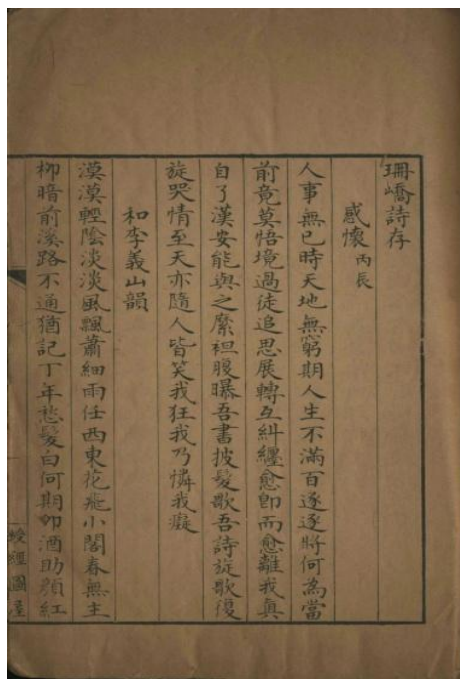 珊嶠詩存
感懷 丙辰
人事無已時天地無窮期人生不滿百逐逐將何為當
前竟莫悟境過徒追思展轉互糾纏愈卽而愈離我真
自了漢安能與之縻袒腹曝吾書披髮歌吾詩旋歌復
旋哭情至天亦隨人皆笑我狂我乃憐我癡
和李義山韻
漠漠輕陰淡淡風飄蕭細雨任西東花飛小閣春無主
柳暗前溪路不通猶記丁年愁髮白何期卯酒助顏紅